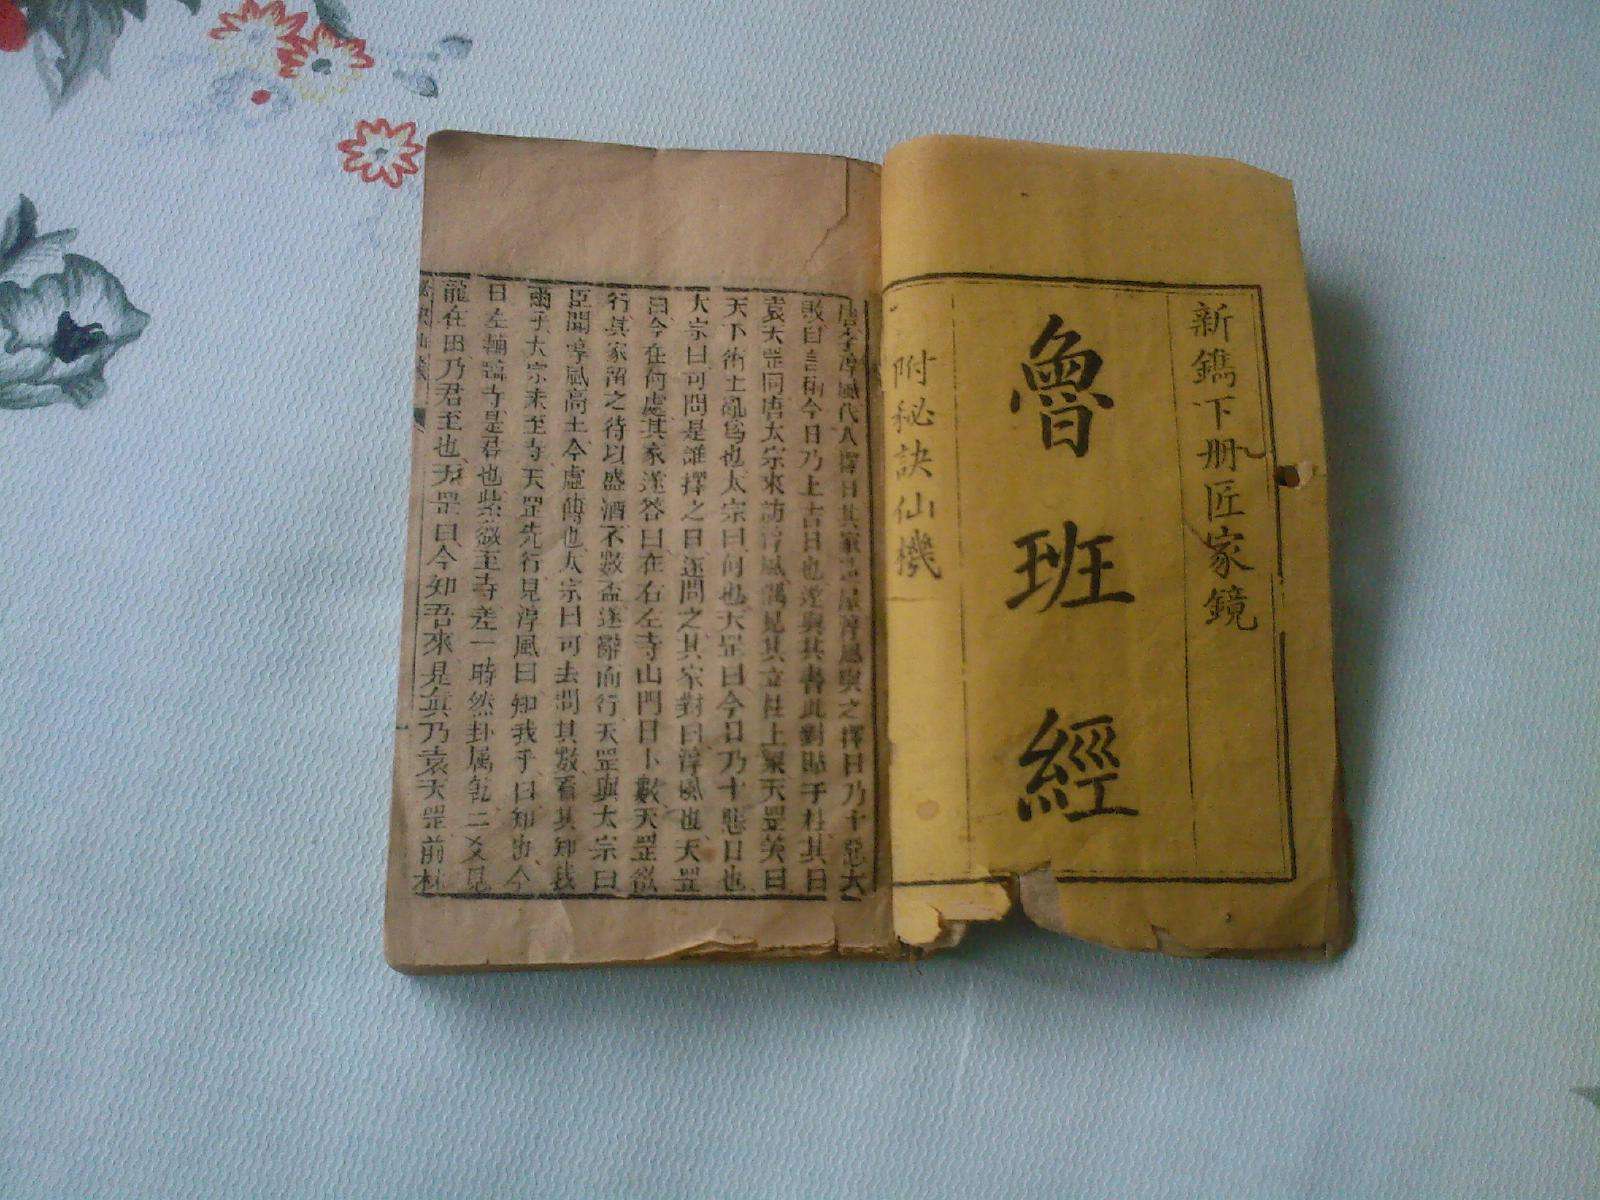 新鐫下册匠家鏡
魯班經
附秘訣仙機
代人擇日其家
敗日
今日乃上吉日也遂與其書此對貼于柱其日
袁天罡同唐太宗來訪淳風偶見其立柱上梁天罡笑曰
天下術士亂為也太宗曰何也天罡曰今日乃十惡日也
太宗曰可問是誰擇之日遂問之其家對曰淳風也天罡
曰今在何處其家遂答曰在右左寺山門日卜數天罡欲
行其家留之待以盛酒不數盃遂辭而行天罡與太宗曰
臣聞淳風高士今虛傳也太宗曰可去問其數看其知我
乎太宗未至寺天罡先行見淳風曰知我乎曰知也今
日左輔臨寺是君也紫微至寺差一時然卦属
二爻見
龍在田乃君至也天罡曰今知吾來是真乃袁天罡前